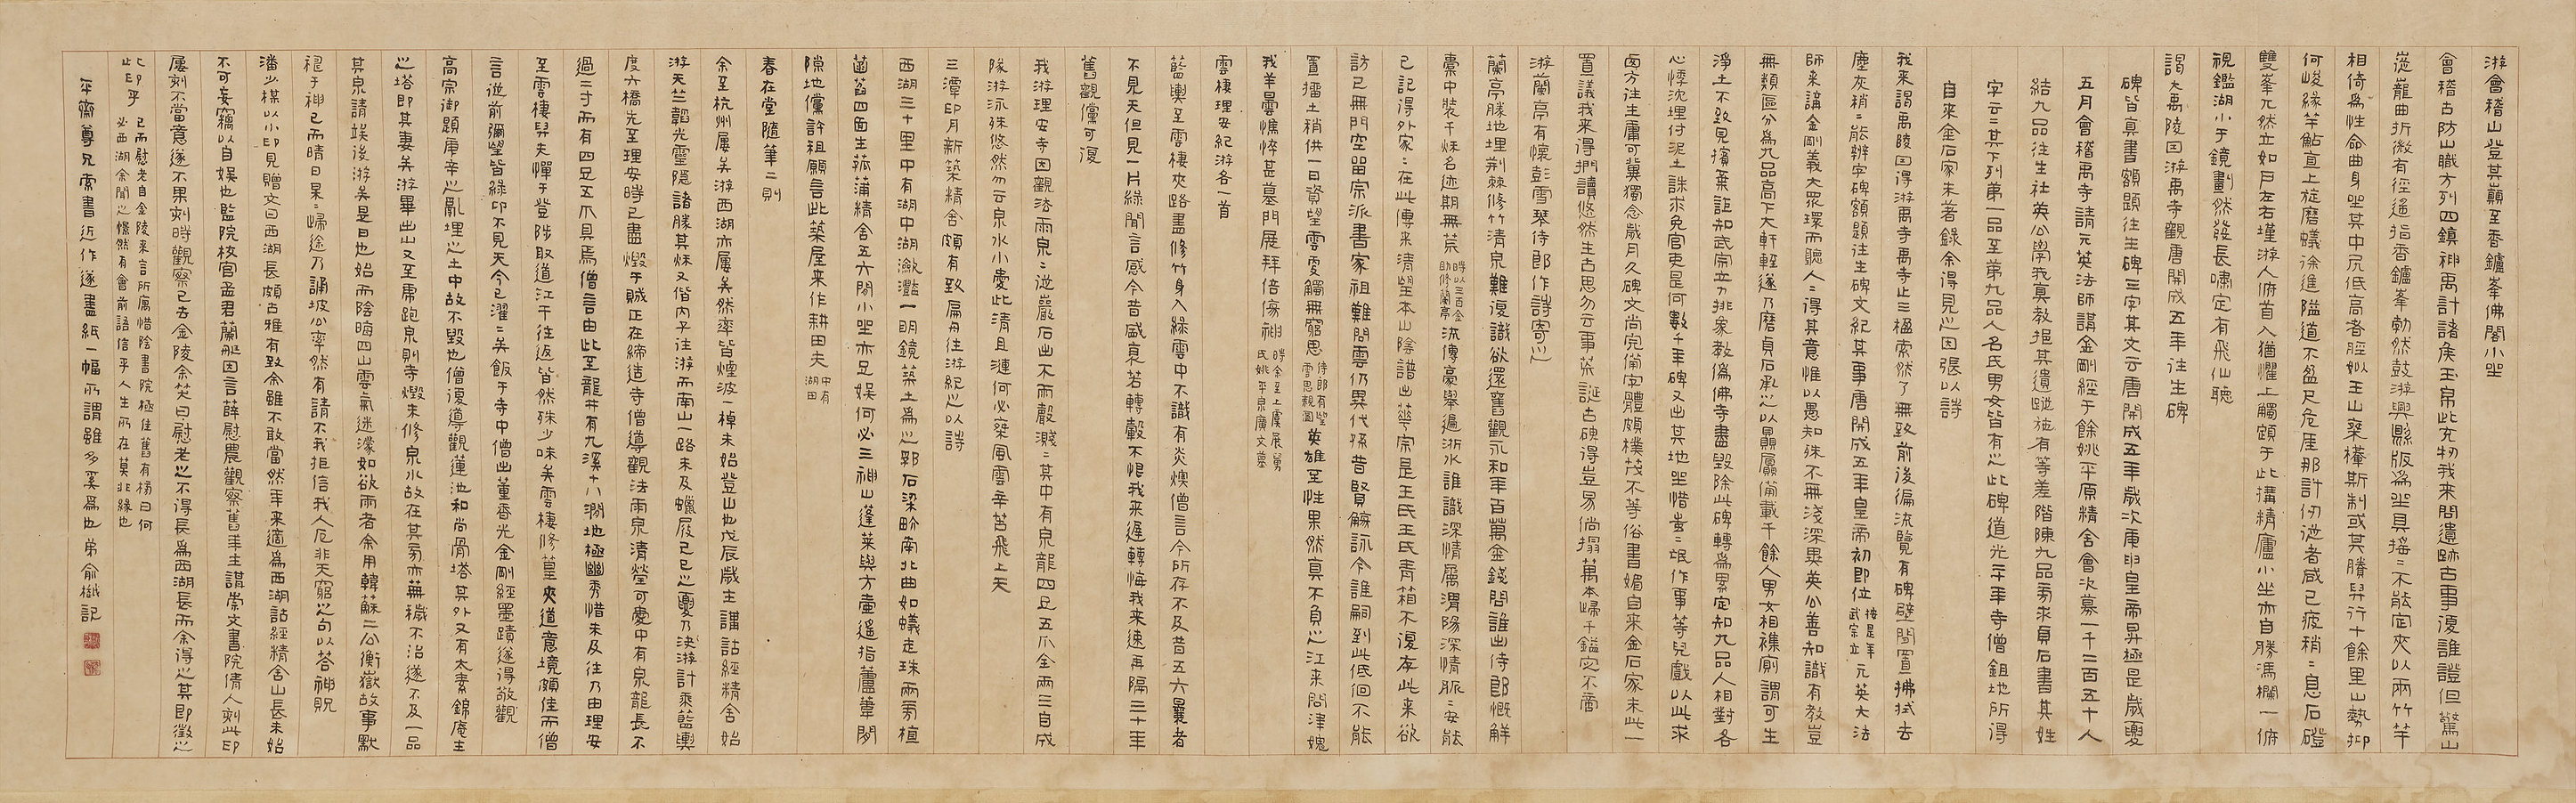 游會稽山登其巔至香鑪峯佛閣小坐
會稽古防山職方列四鎮神禹計諸矦玉帛此充牣我来問遺跡古事復誰證但驚山
從巃曲折微有徑遥指香鑪峯勃然鼓游興縣版爲坐具搖二不能定夾以兩竹竿
相倚爲性命曲身坐其中尻低高者脛姒王山椉樺斯制或其賸舁行十餘里山勢抑
何峻緣竿鮎直上旋磨蟻徐進隘道不盈尺危厓那計仞從者咸已疲稍二息石磴
雙峯兀然立如戶左右墐游人俯首入猶懼上觸顖于此搆精廬小坐亦自勝馮欄一俯
視鑑湖小于鏡劃然發長嘯定有飛仙聽
謁大禹陵因游禹寺觀唐開成五年往生碑
碑皆真書額題往生碑三字其文云唐開成五年歲次庚申皇帝昇極是歲夏
五月會稽禹寺請元英法師講金剛經于餘姚平原精舍會次募一千二百五十人
結九品往生社英公學我真教摳其遺蹤施有等差階陳九品旁求貞石書其姓
字云二其下列弟一品至弟九品人名氏男女皆有之此碑道光二年寺僧鉏地所得
自来金石家未著錄余得見之因張以詩
我来謁禹陵因得游禹寺禹寺止三楹索然了無致前後徧流覽有碑壁閒置拂拭去
塵灰稍二能辨字碑額題往生碑文紀其事唐開成五年皇帝初即位 按是年武宗立 元英大法
師来講金剛義大眾環而聽人二得其意惟以愚知殊不無淺深異英公善知識有教豈
無類區分爲九品高下大軒輊遂乃磨貞石承之以贔屭備載千餘人男女相襍廁謂可生
淨土不致見擯棄詎知武宗立力排象教僞佛寺盡毀除此碑轉爲累定知九品人相對各
心悸沈埋付泥土誅求免官吏是何數千年碑又出其地坐惜蚩二氓作事等兒戲以此求
西方往生庸可冀獨念歲月久碑文尚完備字體頗樸茂不等俗書媚自来金石家未此一
置議我来得捫讀悠然生古思勿云事荒誕古碑得豈易倘搨萬本歸千鎰定不啻
游蘭亭有懷彭雪琴侍郎作詩寄之
蘭亭勝地埋荆棘修竹清泉難復識欲還舊觀永和年百萬金錢問誰出侍郎慨解
橐中裝千秌名迹期無荒 時以三百金助修蘭亭 流傳豪舉遍浙水誰識深情属渭陽深情脈二安能
已記得外家二在此傳来清望本山陰譜出華宗是王氏王氏青箱不復存此来欲
訪已無門空留宗派書家祖難問雲仍異代孫昔賢觴詠今誰嗣到此低徊不能
置攂土稍供一日資望雲更觸無窮思 侍郎有望雲思親圖 英雄至性果然真不負之江来問津媿
我羊曇憔悴甚墓門展拜倍傷神 時余至上虞展舅氏姚平泉廣文墓
雲棲理安紀游各一首
籃輿至雲棲夾路晝修竹身入綠雲中不識有炎燠僧言今所存不及昔五六曩者
不見天但見一片綠聞言感今昔盛衰若轉轂不恨我来遲轉悔我来速再隔三十年
舊觀儻可復
我游理安寺因觀法雨泉二從巖石出不雨聲濺二其中有泉龍四足五爪全兩三自成
隊游泳殊悠然勿云泉水小憂此清且漣何必椉風雲辛苦飛上天
三潭印月新築精舍頗有致扁舟往游紀之以詩
西湖三十里中有湖中湖瀲灩一明鏡築土爲之郛石梁畍南北曲如蟻走珠兩旁植
菡萏四面生菰蒲精舍五六閒小坐亦足娛何必三神山蓬莱與方壷遥指蘆葦閒
隙地儻許租願言此築屋来作耕田夫 中有湖田
春在堂隨筆二則
余至杭州屢矣游西湖亦屢矣然率皆煙波一棹未始登山也戊辰歲主講詁經精舍始
游天竺韜光靈隱諸勝其秌又偕内子往游而南山一路未及蠟屐己巳之夏乃決游計乘籃輿
度六橋先至理安時已盡燬于賊正在締造寺僧導觀法雨泉清瑩可憂中有泉龍長不
過二寸而有四足五爪具焉僧言由此至龍井有九溪十八澗地極幽秀惜未及往乃由理安
至雲棲舁夫憚于登陟取道江干往返皆然殊少味矣雲棲修篁夾道意境頗佳而僧
言從前彌望皆綠卬不見天今已濯二矣飯于寺中僧出董香光金剛經墨蹟遂得敬觀
高宗御題庚辛之亂埋之土中故不毀也僧復導觀蓮池和尚骨塔其外又有太素錦庵主
之塔即其妻矣游畢出山又至虎跑泉則寺燬未修泉水故在其旁亦蕪穢不治遂不及一品
其泉請竢後游矣是日也始而陰晦四山雲氣迷濛如欲雨者余用韓蘇二公衡嶽故事默
禱于神已而晴日杲二歸途乃誦坡公率然有請不我拒信我人厄非天窮之句以答神貺
潘少楳以小印見贈文曰西湖長頗古雅有致余雖不敢當然年来適爲西湖詁經精舍山長未始
不可妄竊以自娛也監院校官孟君蘭艇因言薛慰農觀察舊年主講崇文書院倩人刻此印
屢刻不當意遂不果刻時觀察已去金陵余笑曰慰老之不得長爲西湖長而余得之其即徵之
匕印乎 已而慰老自金陵来言所属惜陰書院極佳舊有楊曰何必西湖余聞之憮然有會前語信乎人生所在莫非緣也
平齋尊兄索書近作遂盡紙一幅所謂雖多奚爲也弟俞樾記